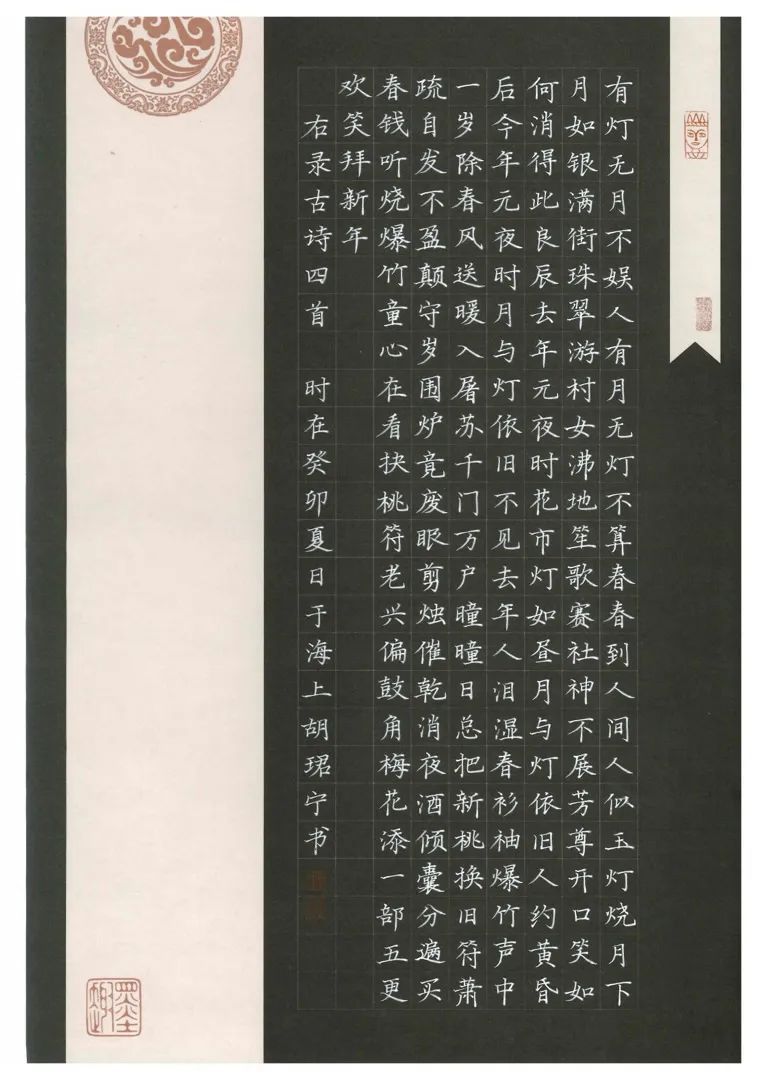 有灯无月不娱人有月无灯不算春春到人间人似玉灯烧月下
月如银满街珠翠游村女沸地笙歌赛社神不展芳尊开口笑如
何消得此良辰去年元夜时花市灯如昼月与灯依旧人约黄昏
后今年元夜时月与灯依旧不见去年人泪湿春衫袖爆竹声中
一岁除春风送暖入屠苏千门万户瞳瞳日总把新桃换旧符萧
疏自发不盈颠守岁围炉竟废眼剪烛催乾消夜酒倾囊分遍买
春钱听烧爆竹童心在看抉桃符老兴偏鼓角梅花添一部五更
欢笑拜新年
右录古诗四首 时在癸卯夏日于海上胡珺宁书
墨趣